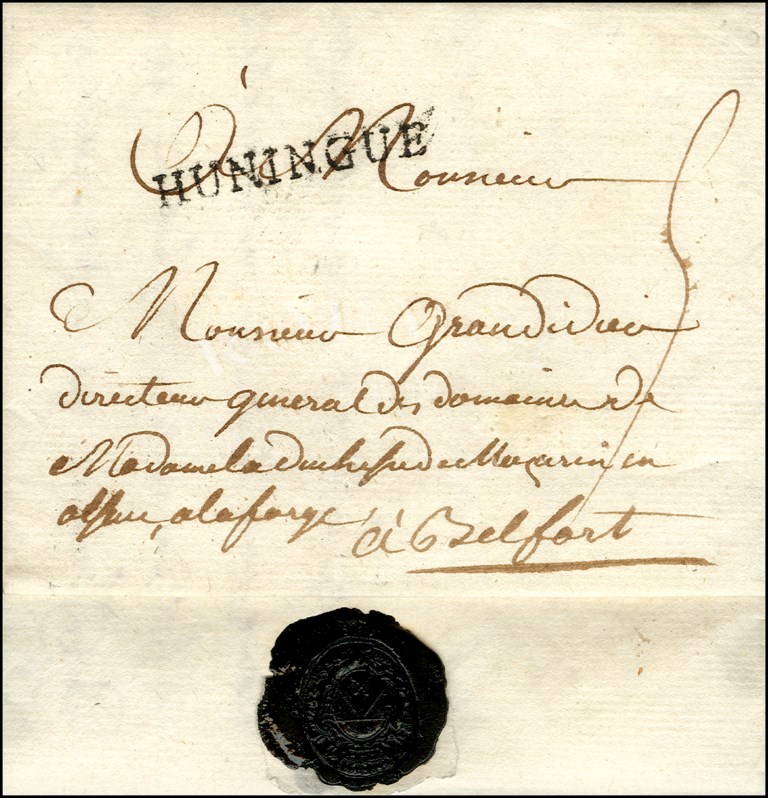 A Monsieur
HUNINGUE
Monsieur Grandidier
directeur general des domaines de
Madame la duchesse de Mazarin en
alsace, a la forge
à Belfort